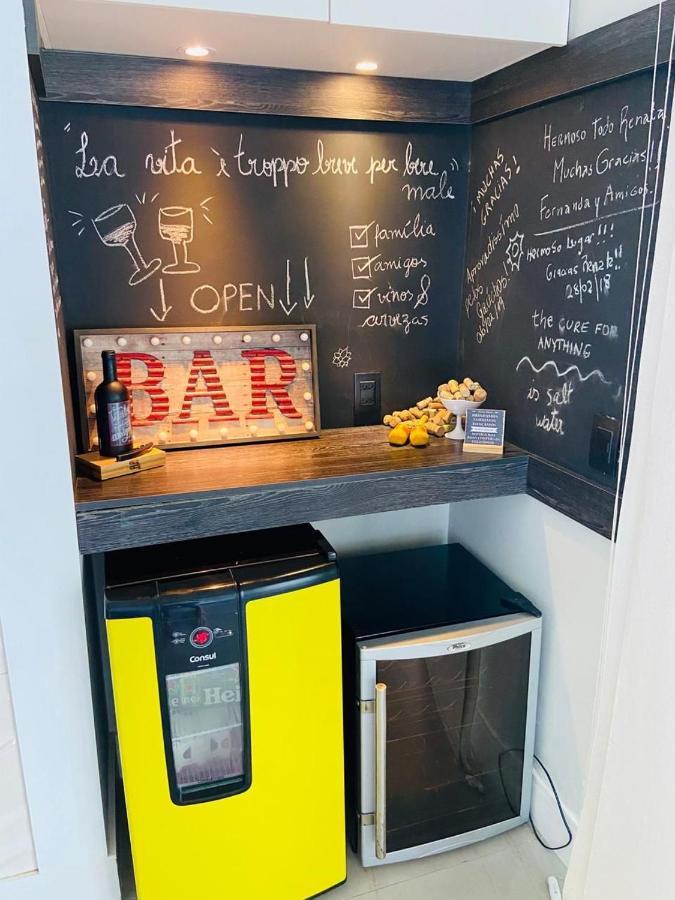 "La vita è troppo breve per bere
male"
família
amigos
vinos &
cervezas
OPEN
BAR
¡MUCHAS
GRACIAS!
Hermoso Todo Renata
Muchas Gracias!!!
Fernanda y Amigos.
Hermoso Lugar!!!
Gracias Renata!!
28/02/18
the CURE FOR
ANYTHING
is salt
water
Consul
Hei
Philco